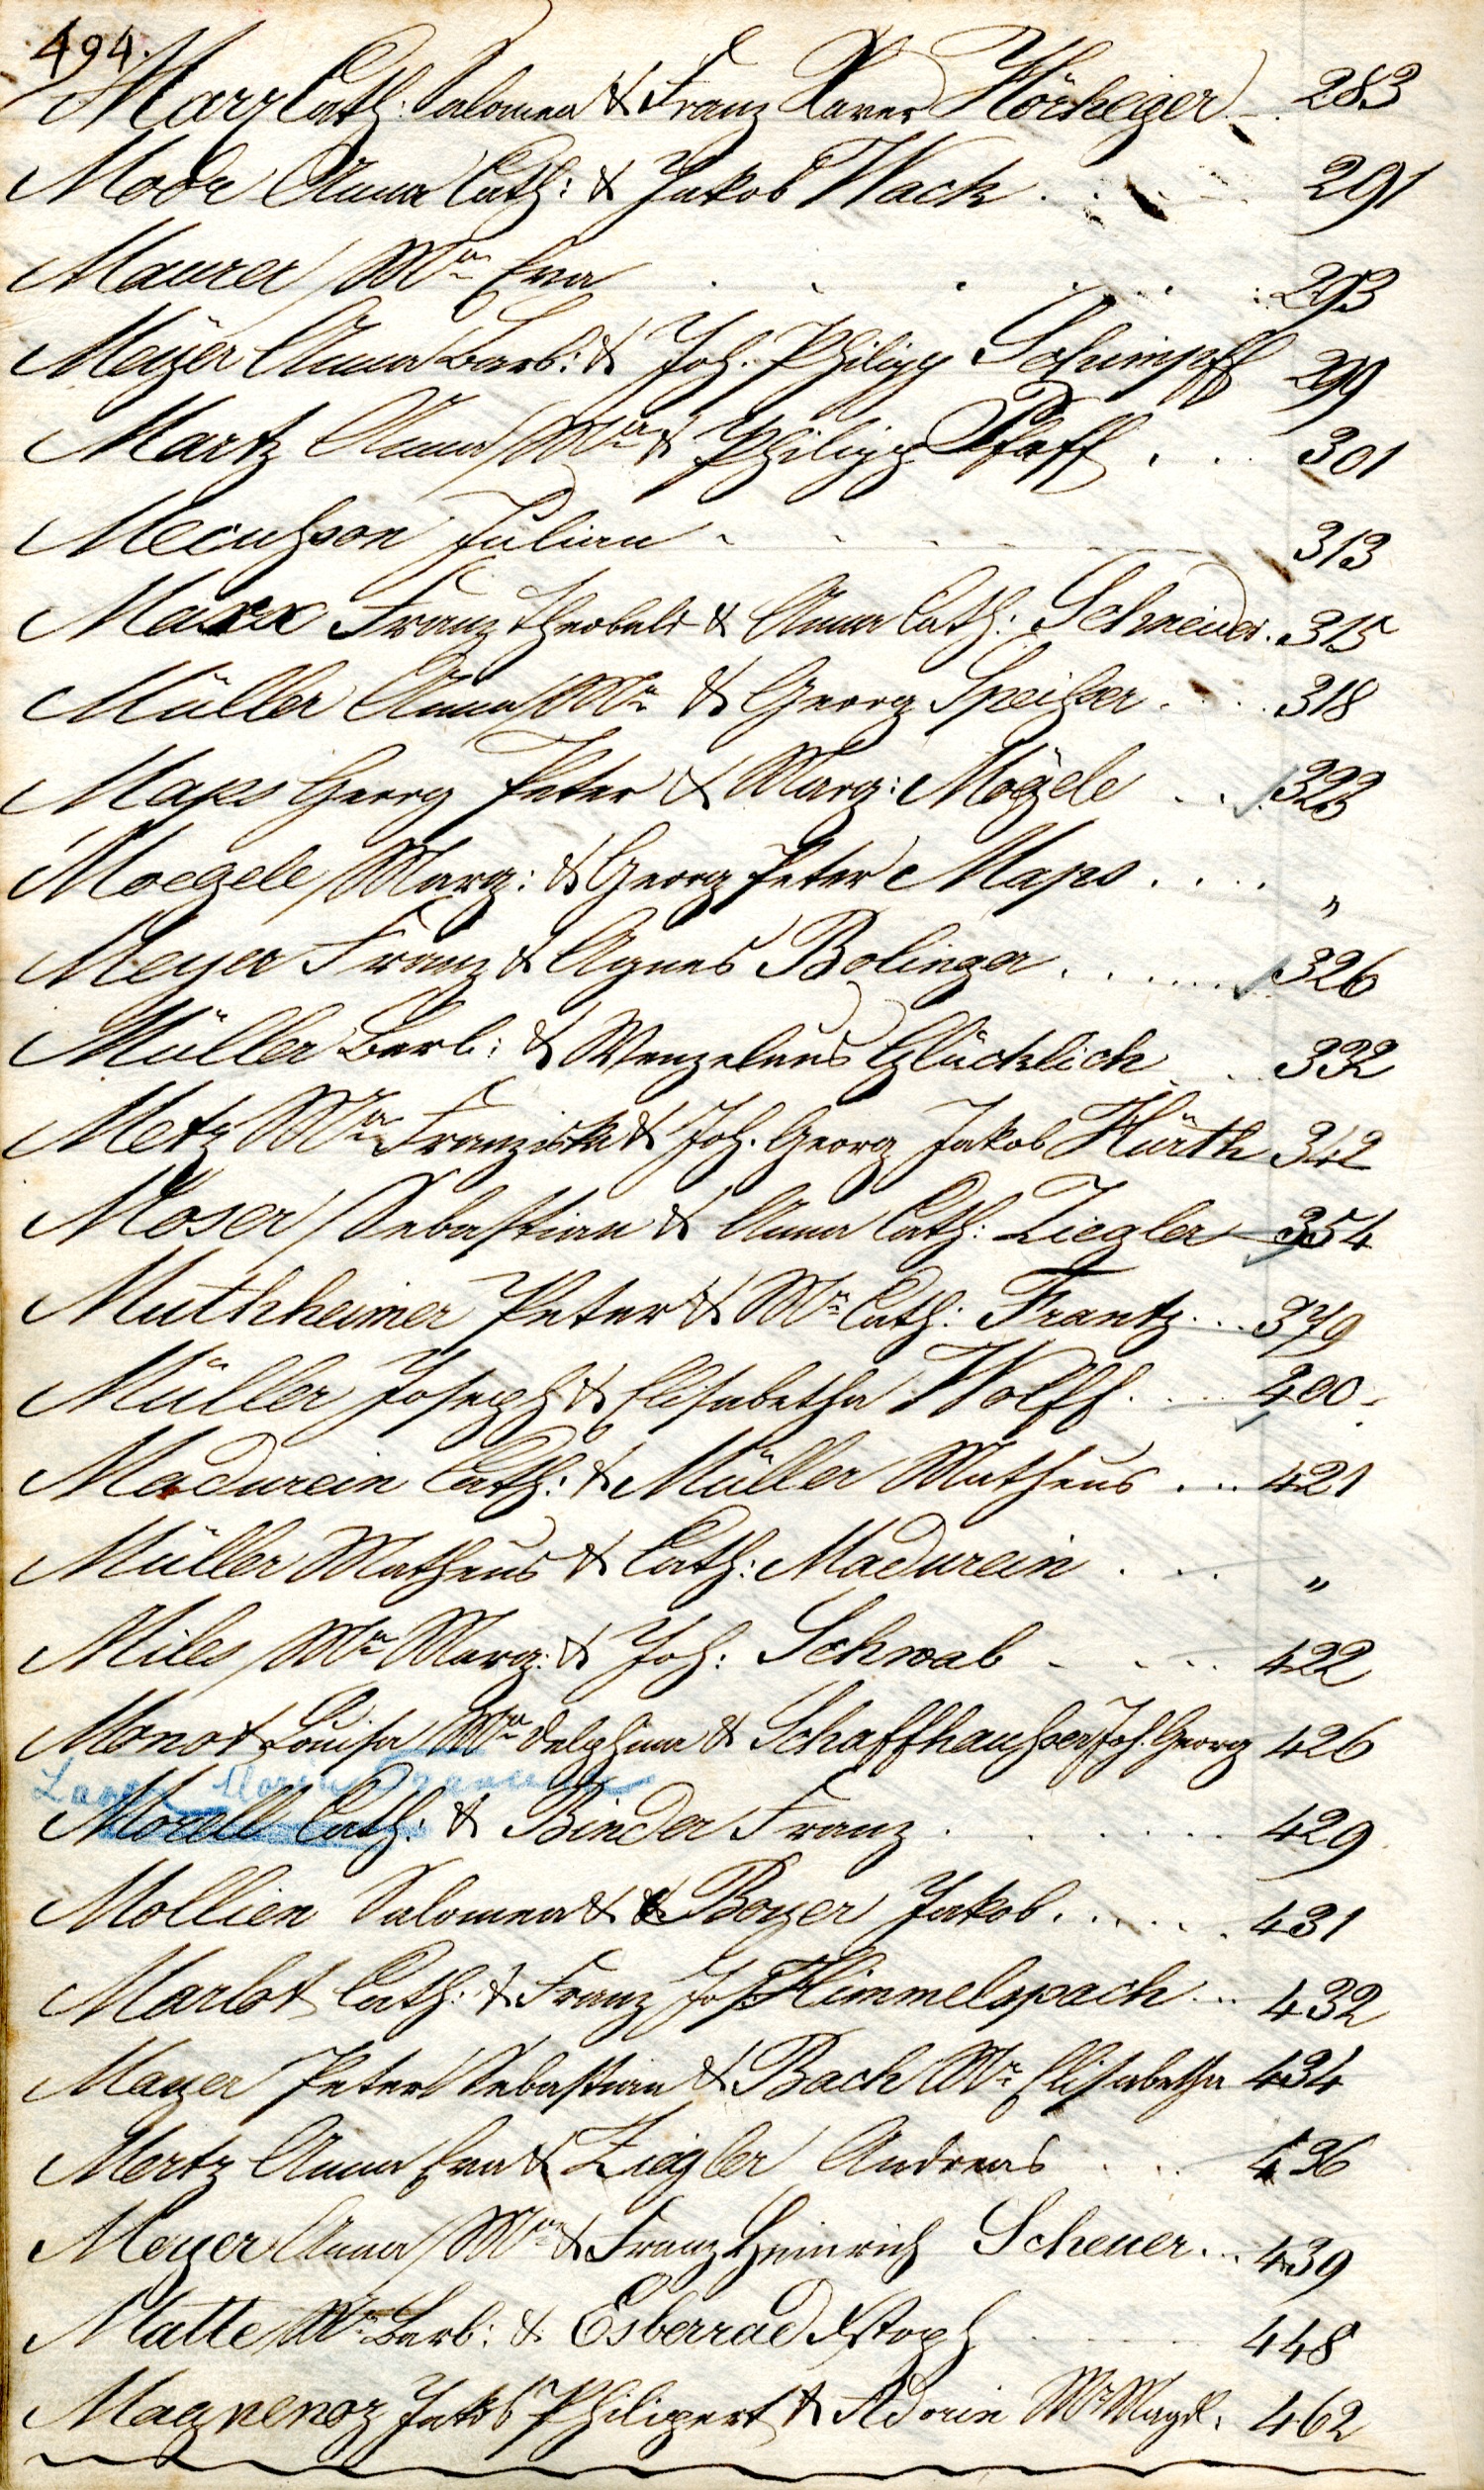 494.
Marx Cath: Salomea & Franz Xaver Hörheger 283
Moor Anna Cath: & Jakob Wack . . 291
Maurer Mᵃ Eva . . . . . . 293
Meyer Anna Barb: & Joh. Philipp Schimpff 299
Martz Anna Mᵃ & Philipp Pfaff . . . 301
Julian 313
Marx Franz Theobald & Anna Cath: Schneider. 315
Müller Anna Mᵃ & Georg Speißer . . . . 318
Maps Georg Peter & Marg: Mögele . . . 323
Moegele Marg: & Georg Peter Maps . . . . "
Meyer Franz & Agnes Bolinger . . . . . . 326
Müller Barb: & Wenzelaus Glücklich . . 332
Metz Mᵃ Franziska & Joh. Georg Jakob Hürth 342
Moser Sebastian & Anna Cath: Ziegler 354
Muthheimer Peter & Mᵃ Cath: Frantz . . . 379
Müller Joseph & Elisabetha Wolff . . . . 400.
Madurein Cath: & Müller Matheus . . . . 421
Müller Matheus & Cath: Madurein . . . "
Miles Mᵃ Marg: & Joh: Schwab - . . . 422
Monot Louisa Mᵃ Delphina & Schaffhaußer Joh. Georg 426
Maria
Morell Cath: & Binder Franz . . . . . . 429
Mollien Salomea & & Boyer Jakob . . . . . . 431
Marbot Cath: & Franz Jos: Himmelspach . . . 432
Mayer Peter Sebastian & Bach Mᵃ Elisabetha 434
Mertz Anna Eva & Ziegler Andreas . . . 436
Meyer Anna Mᵃ & Franz Heinrich Scheuer . . . 439
Matte Mᵃ Barb: & Esberrad 448
Jakob Philipert & Adorin Mᵃ Magd. 462